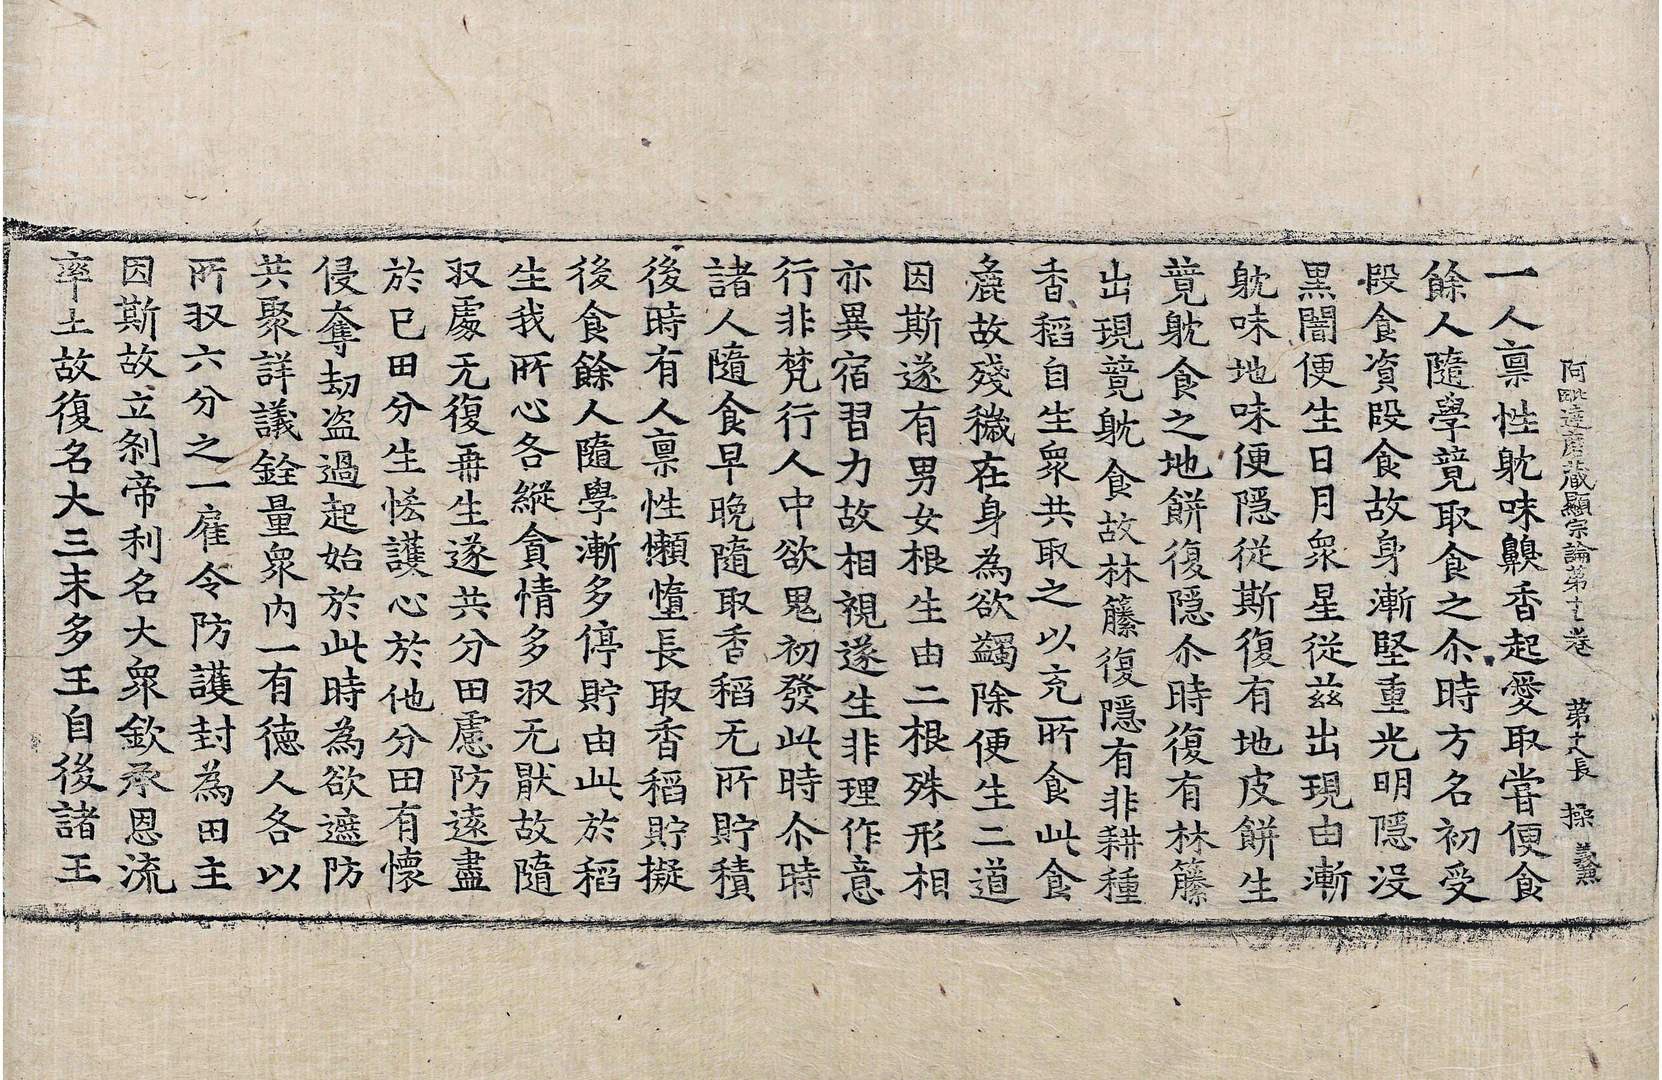 阿毗達磨藏顯宗論第十七卷 第十八長 操 義㷠
一人禀性躭味齅香起愛取嘗便食
餘人隨學競取食之尒時方名初受
段食資段食故身漸堅重光明隱沒
黑闇便生日月衆星從兹出現由漸
躭味地味便隱從斯復有地皮餅生
競躭食之地餅復隱尒時復有林籐
出現競躭食故林籐復隱有非耕種
香稻自生衆共取之以充所食此食
麁故殘穢在身為欲蠲除便生二道
因斯遂有男女根生由二根殊形相
亦異宿習力故相視遂生非理作意
行非梵行人中欲鬼初發此時尒時
諸人隨食早晚隨取香稻无所貯積
後時有人禀性懶墮長取香稻貯擬
後食餘人隨學漸多停貯由此於稻
生我所心各縱貪情多収无猒故隨
収處无復再生遂共分田慮防遠盡
於己田分生恡護心於他分田有懷
侵奪劫盗過起始於此時為欲遮防
共聚詳議銓量衆內一有德人各以
所収六分之一雇令防護封為田主
因斯故立刹帝利名大衆欽承恩流
率土故復名大三末多王自後諸王